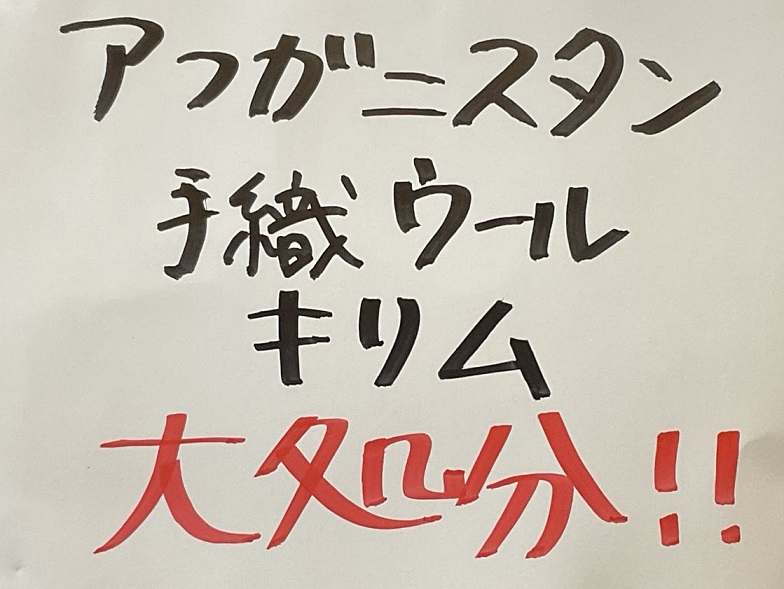 アフガニスタン
手織ウール
キリム
大処分!!